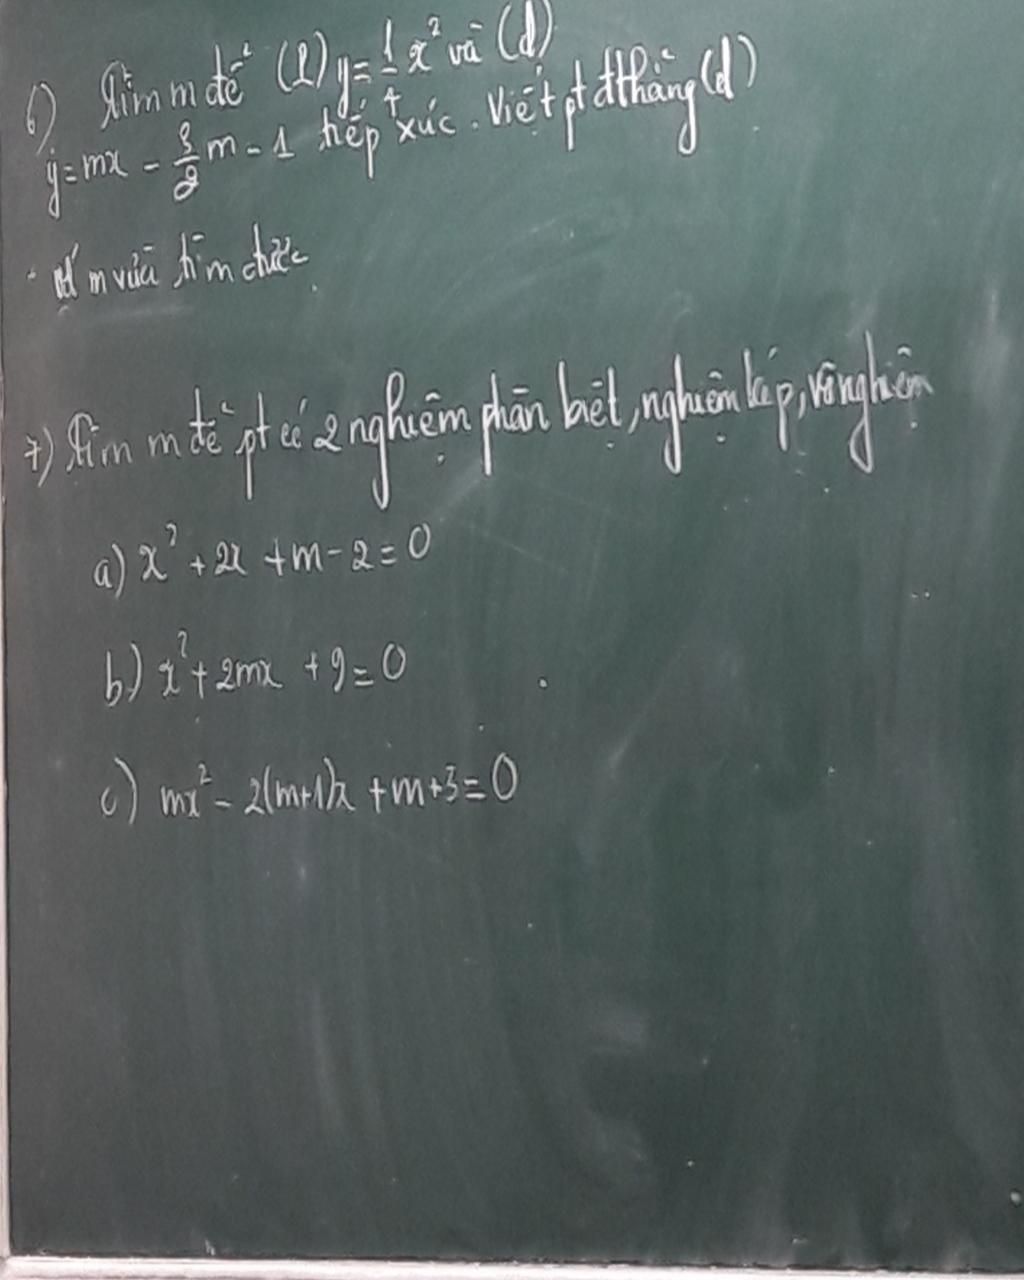 6) Tìm m để (P) y = 1/4 x² và (d)
y = mx - 3/2 m - 1 tiếp xúc. Viết pt đthẳng (d)
m vừa tìm được.
7) Tìm m để pt có 2 nghiệm phân biệt, nghiệm kép, vô nghiệm
a) x² + 2x + m - 2 = 0
b) x² + 2mx + 9 = 0
c) mx² - 2(m+1)x + m + 3 = 0